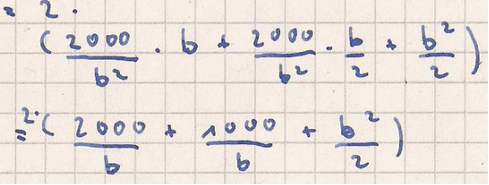 = 2 ·
( 2000/b² · b + 2000/b² · b/2 + b²/2 )
= 2· ( 2000/b + 1000/b + b²/2 )